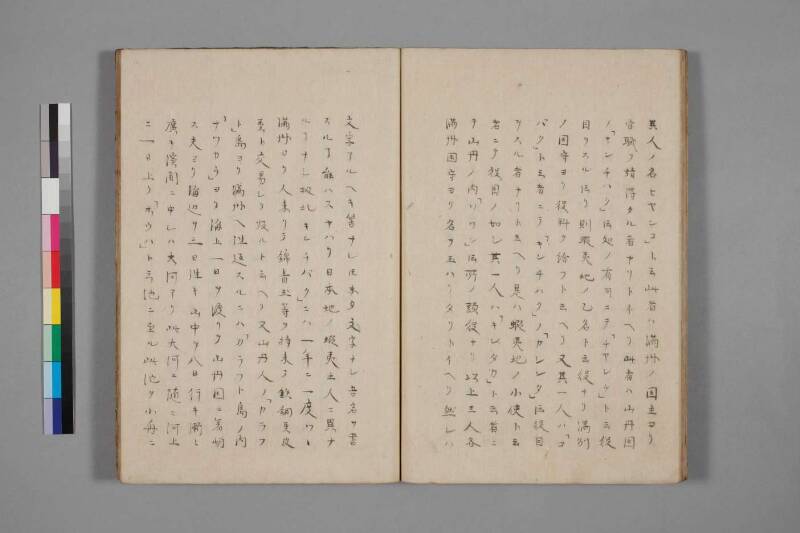 其人ノ名ヒヤンコト云此者ハ満州ノ国主ヨリ
官職ヲ蜻得タル者ナリトイヘリ此者ハ山丹国
ノキンチハク云処ノ有司ニテチヤンケト云役
目ヲスル由リ則蝦夷地ノ乙名ト云役ナリ満州
ノ国守ヨリ役料ヲ給フト云ヘリ又其一人ハコ
バクト云者ニテキンチハクノカンレタ云役目
ヲスル者ナリト云ヘリ是ハ蝦夷地ノ小使ト云
者ニテ役目ノ如シ其一人ハキレタカト云者ニ
テ山丹ノ内ノワシ云所ノ頭役ナリ以上三人各
満州国守ヨリ名ヲ玉ハリタリトイヘリ然レハ
文字アルヘキ筈ナレ由来タ文字ナシ吾名サ書
スルヿ能ハスヤハリ日本地ノ蝦夷土人ニ異ナ
ルヿナシ扨此キンチバクニハ一年ニ一度ツヽ
満州ヨリ人来リテ錦青玉等ヲ持来ヲ軟絹更皮
至ト交易シ皈ルト云ヘリ又山丹人ノカラフ
ト島ヨリ満州ヘ往返スルニハカラフト島ノ内
ナツカラヨリ海上一日ヲ渡リ夕山丹国ニ着網
ス夫ヨリ海辺ヲ三日往キ山中ヲ八日行キ漸シ
廣キ渓間ニ出レハ大河アリ此大河ニ随ニ河上
ニ一日上リホウハト云池ニ至ル此池ヲ小舟ニ